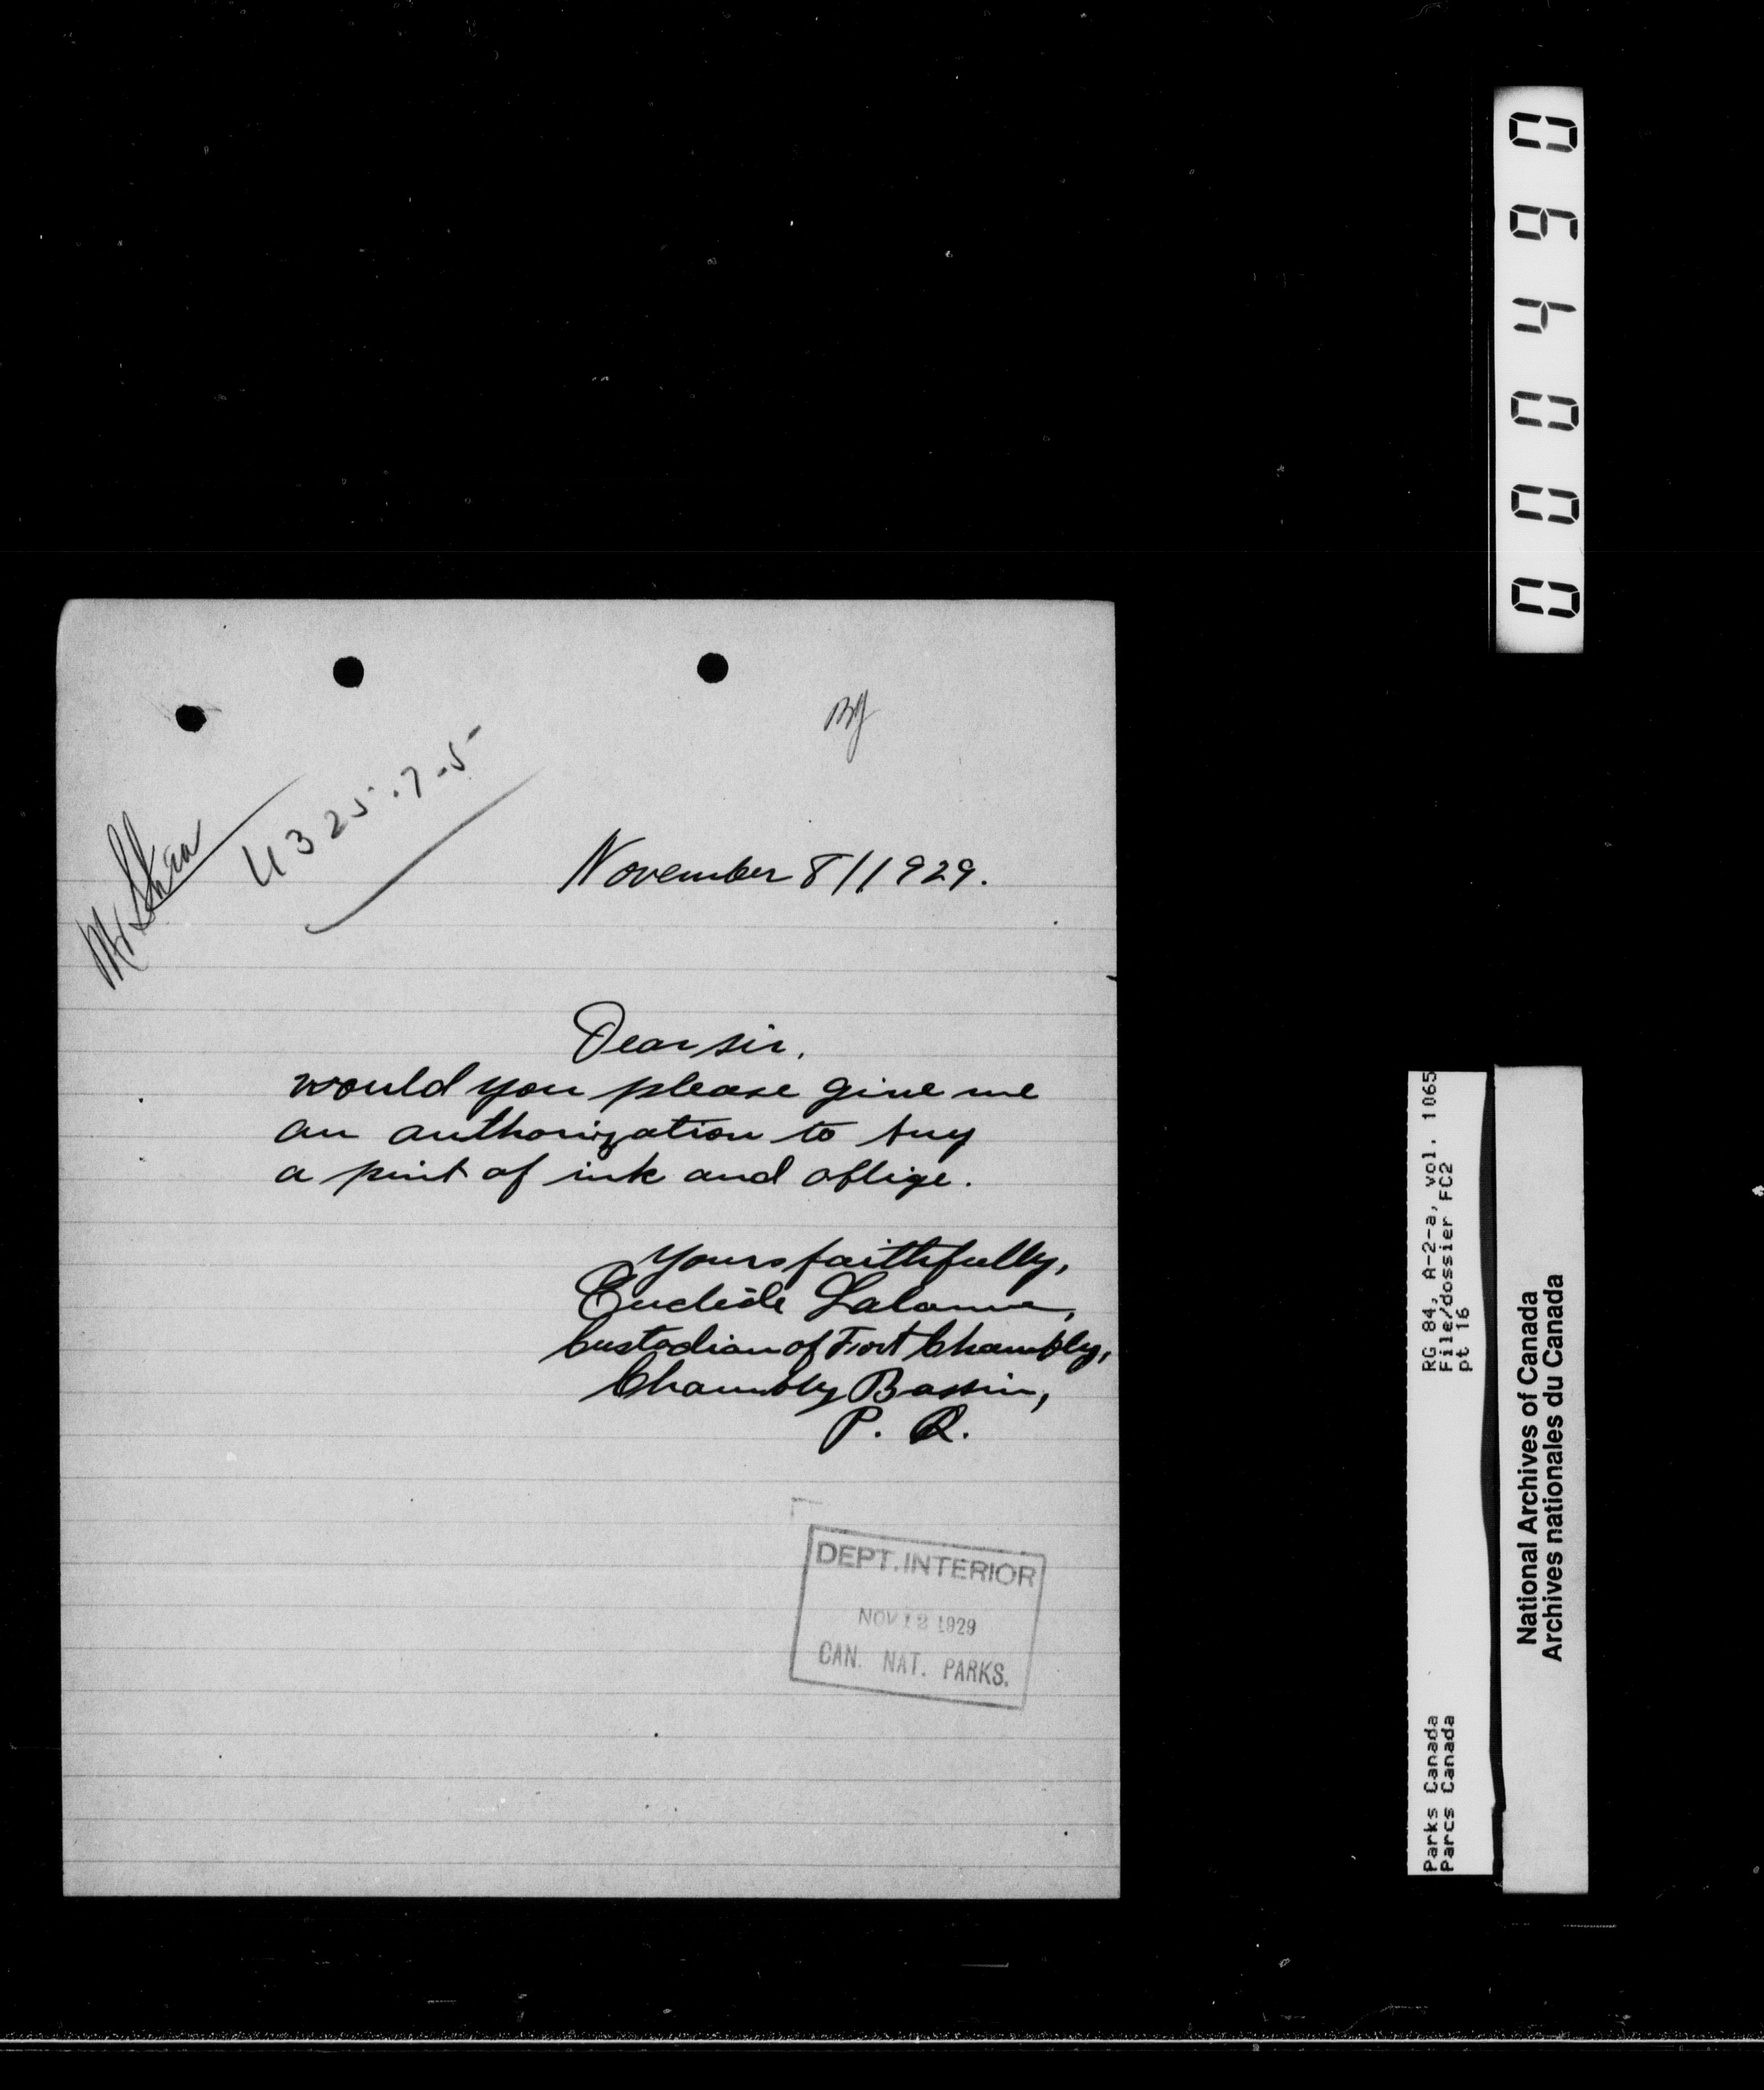 By
Mr Shaw
U 325.7-5
November 8/1929.
Dear sir,
would you please give me
an authorization to buy
a pint of ink and oblige.
Yours faithfully,
Euclide Lalanne,
Custodian of Fort Chambly,
Chambly Bassin,
P. Q.
DEPT. INTERIOR
NOV 12 1929
CAN. NAT. PARKS.
000460
RG 84, A-2-a, vol. 1065
File/dossier FC2
pt 16
Parks Canada
Parcs Canada
National Archives of Canada
Archives nationales du Canada